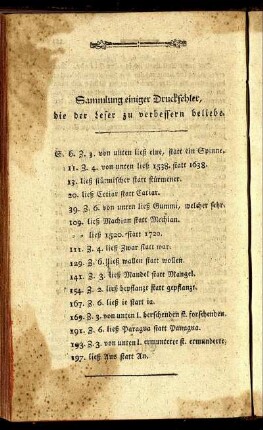 Sammlung einiger Druckfehler,
die der Leser zu verbessern beliebe.
S. 6. Z. 3. von unten ließ eine, statt ein Spinne.
11. Z. 4. von unten ließ 1538. statt 1638.
13. ließ stürmischer statt stürmener.
20. ließ Cetiar statt Catiar.
39. Z. 6. von unten ließ Gummi, welcher sehr.
109. ließ Machian statt Mechian.
- - ließ 1520. statt 1720.
111. Z. 4. ließ Zwar statt war.
129. Z. 6. ließ wallen statt wollen.
141. Z. 3. ließ Mandel statt Mangel.
154. Z. 2. ließ bepflanzt statt gepflanzt.
167. Z. 6. ließ ie statt ia.
169. Z. 3. von unten l. herschenden st. forschenden.
191. Z. 6. ließ Paragua statt Panagua.
193. Z. 3. von unten l. ermunterte st. ermunderte.
197. ließ Aus statt An.